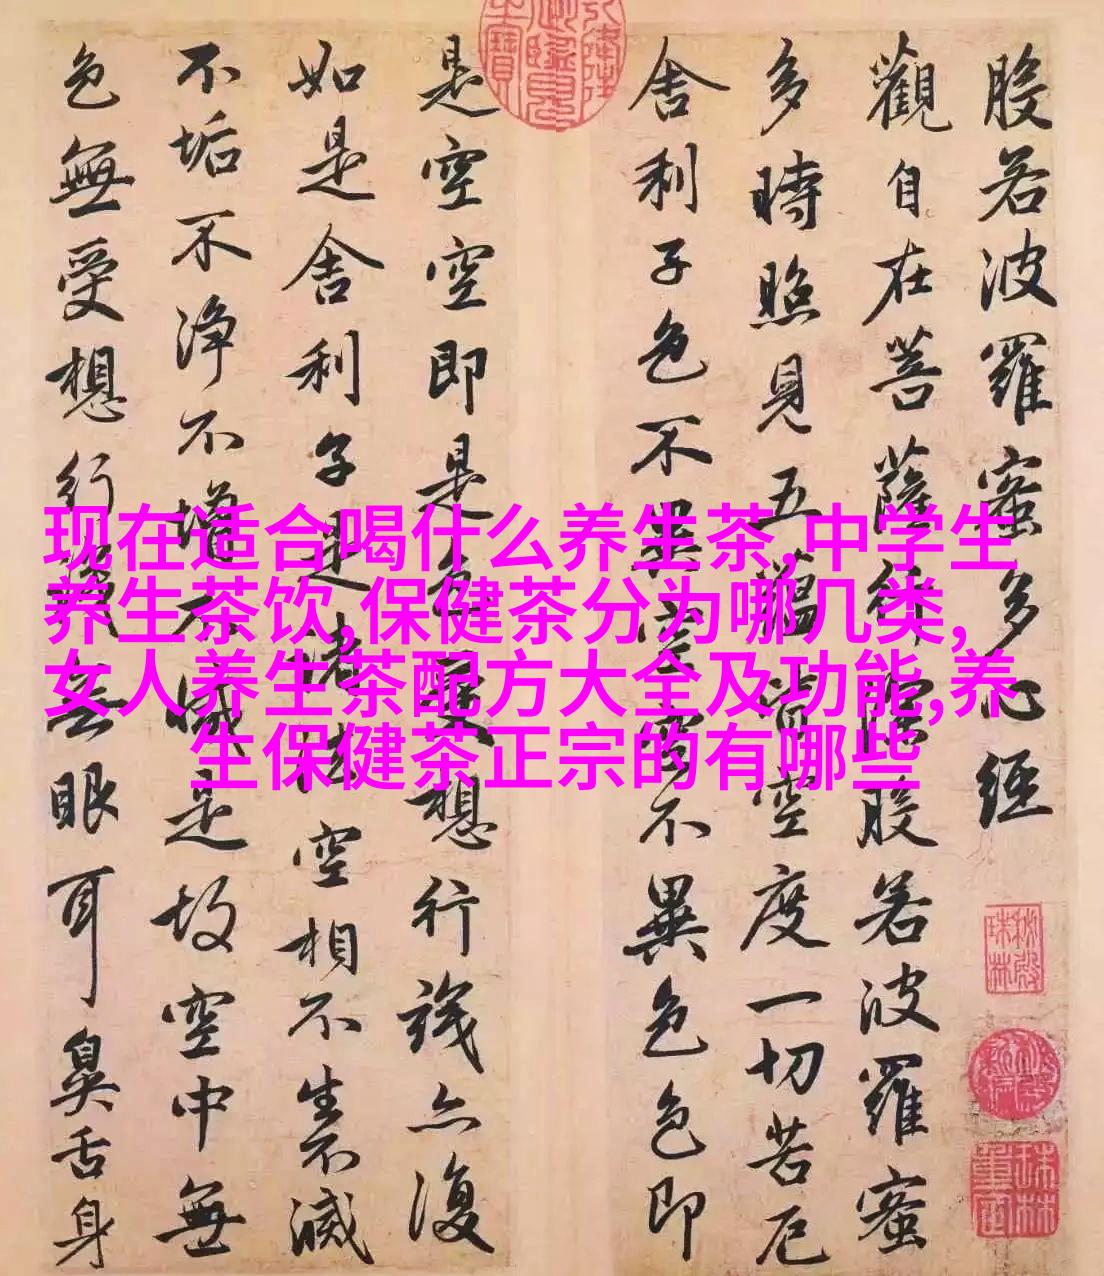 现在适合喝什么养生茶,中学生
养生茶饮,保健茶分为哪几类,
女人养生茶配方大全及功能,养
生保健茶正宗的有哪些
般若波羅蜜多心經
觀自在菩薩行深般若波羅蜜
多時照見五蘊皆空度一切苦厄
舍利子色不異空空不異色色即
是空空即是色受想行識亦復
如是舍利子是諸法空相不生不滅
不垢不净不增不減是故空中無
色無受想行識無眼耳鼻舌身
秘殿
珠林